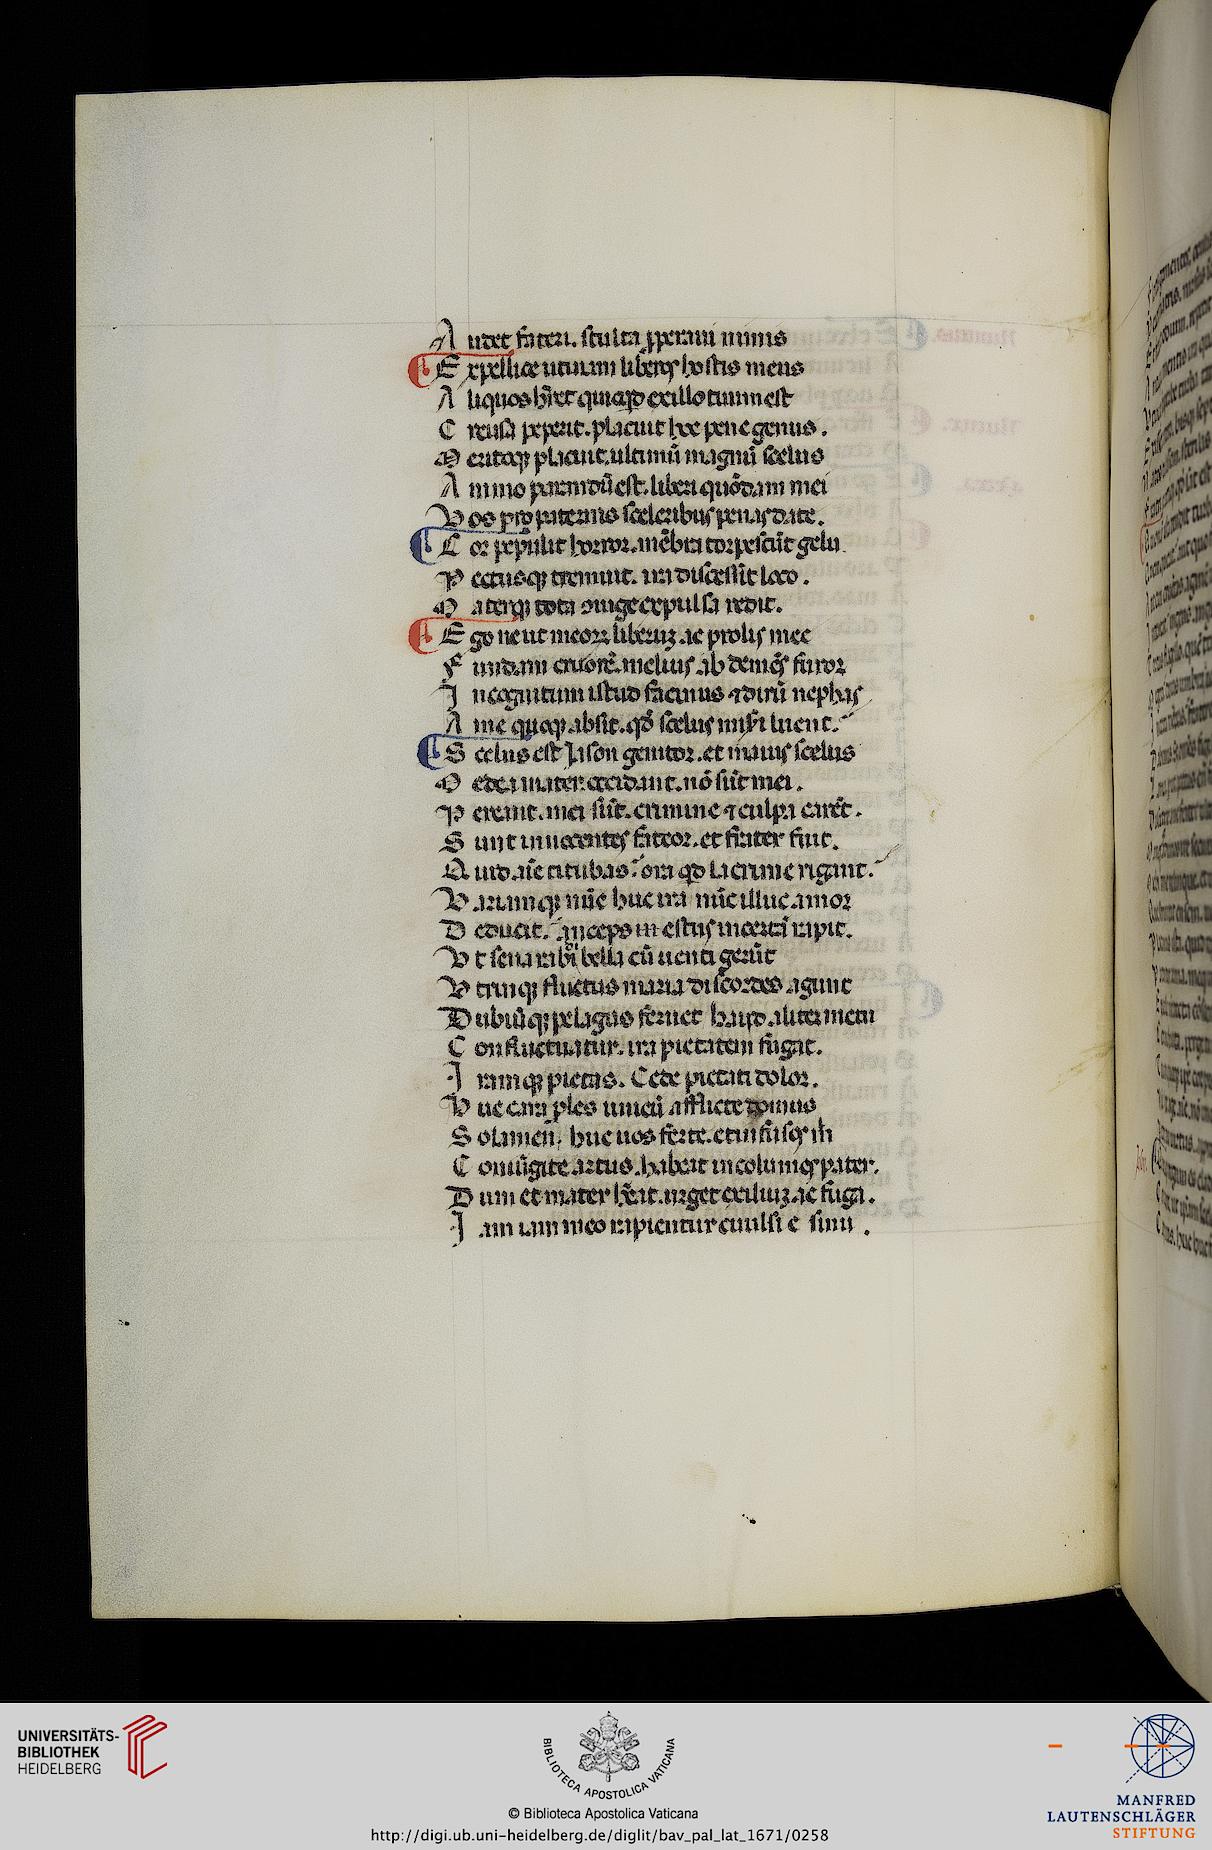 A udet fateri. stulta p̱peraui nimis
E x pellice utinam liberos hostis meus
A liquos hr̄et quicqͥd ex illo tuum est
C reusa peperit. placuit hoc pene genus.
M eritoqꝫ placuit. ultimū magnū scelus
A nimo parandū est. liberi quōdam mei
V os pro paternis sceleribus penas date.
C or pepulit horror. mēbra torpescūt gelu.
P ectusqꝫ tremuit. ira discessit loco.
M aterqꝫ tota ꝯiuge expulsa redit.
E go ne ut meoꝝ liberuꝫ ac prolis mee
F undam cruorē. melius ab demēs furor
I ncognitum istud facinus ⁊ dirū nephas
A me quoqꝫ absit. qd̄ scelus miseri luent.
S celus est Iason genitor. et maius scelus
M edea mater. occidant. nō sūt mei.
P ereant. mei sūt. crimine ⁊ culpa carēt.
S unt innocentes fateor. et frater fuit.
Q uid aīe titubas. ora qͥd lacrime rigant.
V ariamqꝫ nūc huc ira nūc illuc amor
D educit. anceps in estus incertā rapit.
V t seua rabidi bella cū uenti gerūt
V trinqꝫ fluctus maria discordes agunt
D ubiūqꝫ pelagus feruet haud aliter meum
C or fluctuatur. ira pietatem fugat.
I ramqꝫ pietas. Cede pietati dolor.
H uc cara ples unicū afflicte domus
S olamen. huc uos ferte. et infusos m̄
C oniūgite artus. habeat incolumes pater.
D um et mater hēat. urget exiliuꝫ ac fuga.
I am iam meo rapientur auulsi e sinu.
UNIVERSITÄTS-
BIBLIOTHEK
HEIDELBERG
BIBLIOTECA APOSTOLICA VATICANA
© Biblioteca Apostolica Vaticana
http://digi.ub.uni-heidelberg.de/diglit/bav_pal_lat_1671/0258
MANFRED
LAUTENSCHLÄGER
STIFTUNG